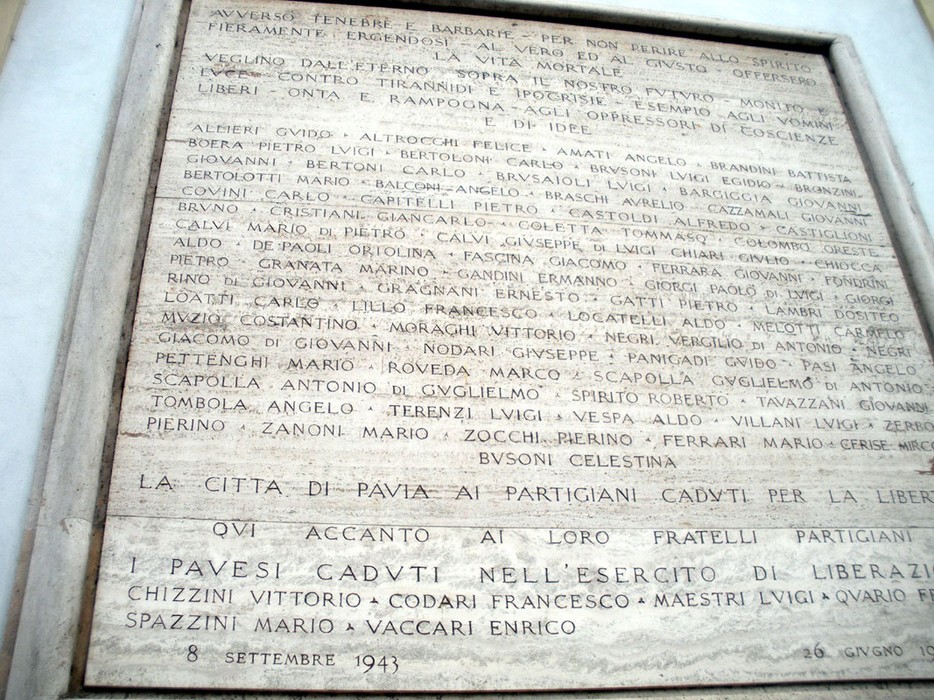 AVVERSO TENEBRE E BARBARIE - PER NON PERIRE ALLO SPIRITO
FIERAMENTE ERGENDOSI - AL VERO ED AL GIUSTO - OFFERSERO
LA VITA MORTALE
VEGLINO DALL'ETERNO SOPRA IL NOSTRO FUTURO - MONITO E
LUCE - CONTRO TIRANNIDI E IPOCRISIE - ESEMPIO AGLI VOMINI
LIBERI - ONTA E RAMPOGNA - AGLI OPPRESSORI DI COSCIENZE
E DI IDEE
ALLIERI GVIDO • ALTROCCHI FELICE • AMATI ANGELO • BRANDINI BATTISTA
BOERA PIETRO LVIGI • BERTOLONI CARLO • BRVSONI LVIGI EGIDIO • BRONZINI
GIOVANNI • BERTONI CARLO • BRVSAIOLI LVIGI • BARGIGGIA GIOVANNI
BERTOLOTTI MARIO • BALCONI ANGELO • BRASCHI AVRELIO • CAZZAMALI GIOVANNI
COVINI CARLO • CAPITELLI PIETRO • CASTOLDI ALFREDO • CASTIGLIONI
BRVNO • CRISTIANI GIANCARLO • COLETTA TOMMASO • COLOMBO ORESTE
CALVI MARIO DI PIETRO • CALVI GIVSEPPE DI LVIGI CHIARI GIVLIO • CHIOCCA
ALDO • DE PAOLI ORTOLINA • FASCINA GIACOMO • FERRARA GIOVANNI • FONDRINI
PIETRO GRANATA MARINO • GANDINI ERMANNO • GIORGI PAOLO DI LVIGI • GIORGI
RINO DI GIOVANNI • GRAGNANI ERNESTO • GATTI PIETRO • LAMBRI DOSITEO
LOATTI CARLO • LILLO FRANCESCO • LOCATELLI ALDO • MELOTTI CARMELO
MVZIO COSTANTINO • MORAGHI VITTORIO • NEGRI VERGILIO DI ANTONIO • NEGRI
GIACOMO DI GIOVANNI • NODARI GIVSEPPE • PANIGADI GVIDO • PASI ANGELO
PETTENGHI MARIO • ROVEDA MARCO • SCAPOLLA GVGLIELMO DI ANTONIO
SCAPOLLA ANTONIO DI GVGLIELMO • SPIRITO ROBERTO • TAVAZZANI GIOVANNI
TOMBOLA ANGELO • TERENZI LVIGI • VESPA ALDO • VILLANI LVIGI • ZERBO
PIERINO • ZANONI MARIO • ZOCCHI PIERINO • FERRARI MARIO • CERISE MIRCO
BVSONI CELESTINA
LA CITTA DI PAVIA AI PARTIGIANI CADVTI PER LA LIBERT
QVI ACCANTO AI LORO FRATELLI PARTIGIANI
I PAVESI CADVTI NELL'ESERCITO DI LIBERAZI
CHIZZINI VITTORIO • CODARI FRANCESCO • MAESTRI LVIGI • QVARIO FR
SPAZZINI MARIO • VACCARI ENRICO
8 SETTEMBRE 1943 26 GIVGNO 19